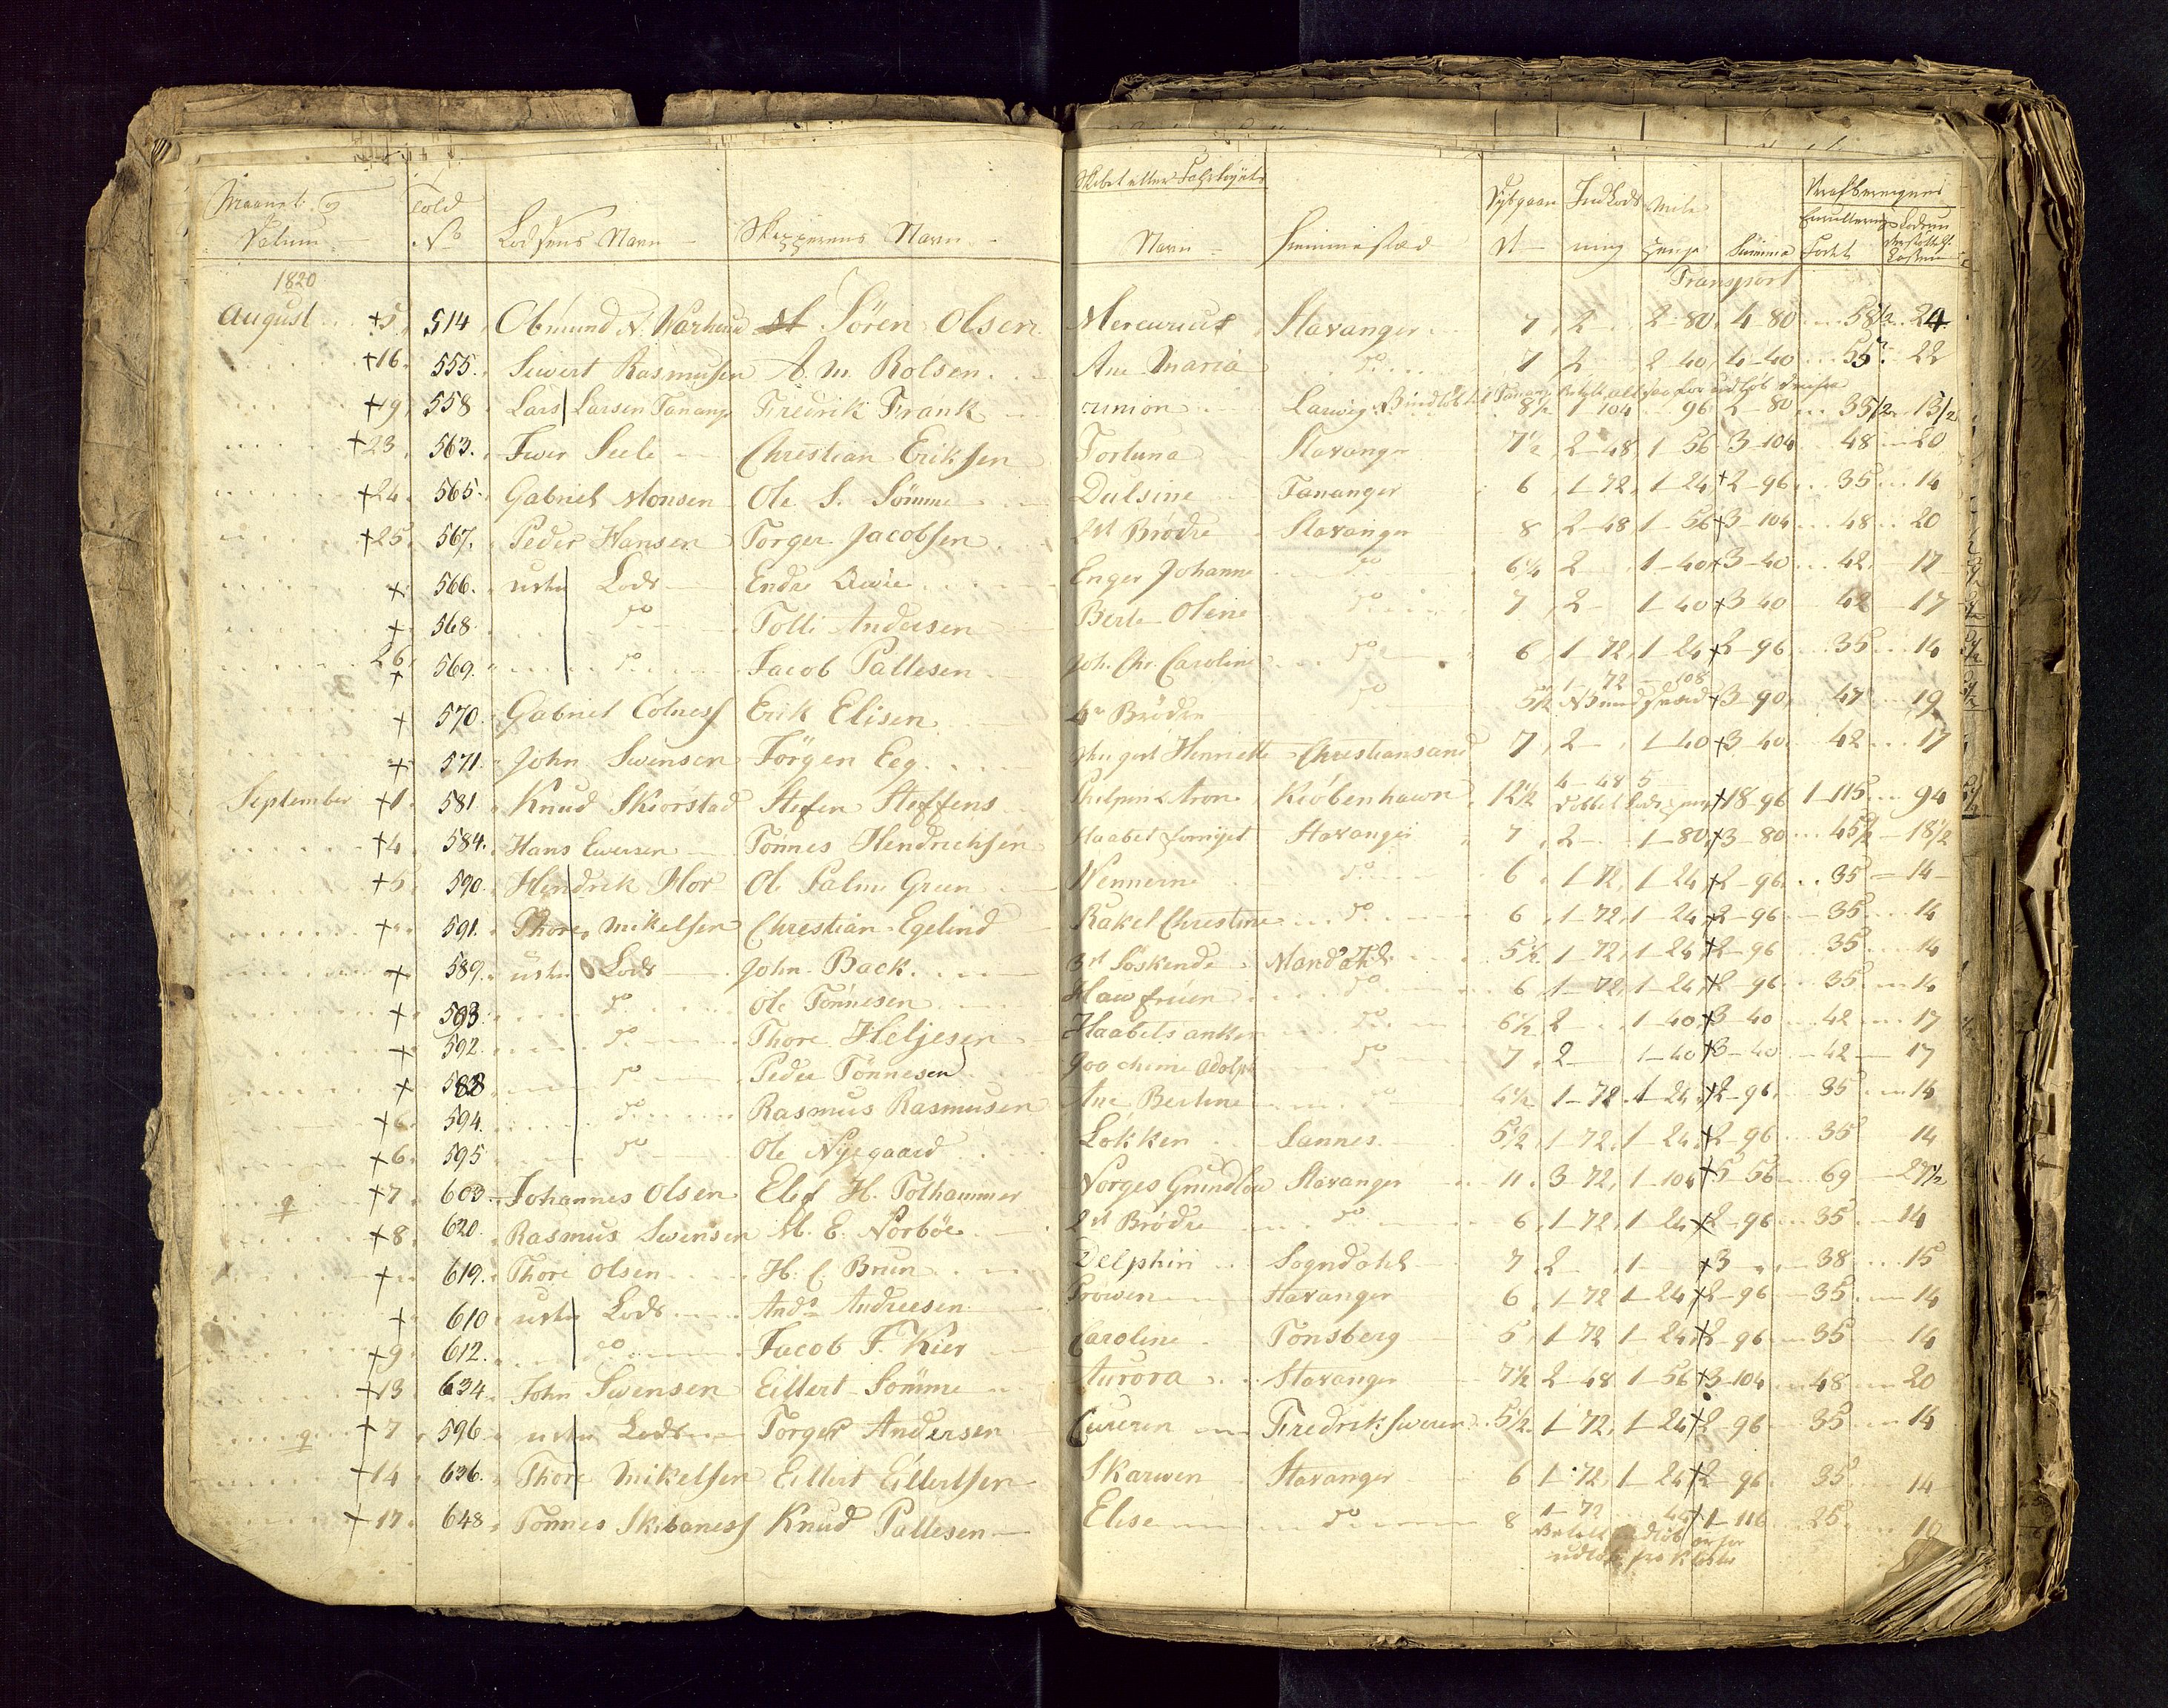 Maanet og Datum | Told No | Lodsens Navn | Skipperens Navn | Skibet eller Fahrtøiets Navn | Hiemmestæd | Dybgaaende | Indlods ning | Mile penge | Summa
1820 | Transport
August +5 | 514 | Obmund N. Warhoue | Sören Olsen | Mercurius | Stavanger | 7 | 2 | 2-80 | 4-80 | 58 1/2 | 24
+16 | 555 | Siwert Rasmusen | A. M. Rolsen | Ane Maria | do | 7 | 2 | 2-40 | 4-40 | 55 | 22
+19 | 558 | Lars Larsen Tananger | Fredrik Frank | Union | Larwig | 8 1/2 | 1-104 | 96 | 2-80 | 35 1/2 | 13 1/2
+23 | 563 | Iwer Seele | Christian Eriksen | Fortuna | Stavanger | 7 1/2 | 2-48 | 1-56 | 3-104 | 48 | 20
+24 | 565 | Gabriel Monsen | Ole S. Sömme | Dulsine | Tananger | 6 | 1-72 | 1-24 | +2-96 | 35 | 14
+25 | 567 | Peder Hansen | Torger Jacobsen | Brödre | Stavanger | 8 | 2-48 | 1-56 | +3-104 | 48 | 20
+ | 566 | uden Lods | Endre | Enger Johanne | do | 6 1/4 | 2 | 1-40 | +3-40 | 42 | 17
+ | 568 | do | Tolli Andersen | Berte Oline | do | 7 | 2 | 1-40 | +3 40 | 42 | 17
26 + | 569 | do | Jacob Pallesen | Joh. Chr. Caroline | do | 6 | 1-72 | 1-24 | +2-96 | 35 | 14
+ | 570 | Gabriel Colness | Erik Elisen | 4re Brödre | do | 5 1/2 | 1-72 | 108 | +3-90 | 47 | 19
+ | 571 | John Swensen | Jörgen Eeg | Henriette | Christiansand | 7 | 2 | 1-40 | +3-40 | 42 | 17
September +1 | 581 | Knud Skiorstad | Stefen Steffens | Kiöbenhawn | 12 1/2 | 4-48 | 5 | +18-96 | 1-115 | 94
+4 | 584 | Hans Ewersen | Tönnes Hendrichsen | Haabet | Stavanger | 7 | 2 | 1-80 | +3-80 | 45 1/2 | 18 1/2
+5 | 590 | Hendrik Hor | Ole Palm Green | Wennerne | do | 6 | 1-72 | 1-24 | +2-96 | 35 | 14
+ | 591 | Thore Mikelsen | Christian Egelind | Rakel Christine | do | 6 | 1-72 | 1-24 | +2-96 | 35 | 14
+ | 589 | uden Lods | John Back | 3de Söskende | Mandahl | 5 1/2 | 1-72 | 1-24 | +2-96 | 35 | 14
+ | 593 | do | Ole Tönnesen | Hawfruen | do | 6 | 1-72 | 1-24 | +2-96 | 35 | 14
+ | 592 | do | Thore Heljesen | Haabets anker | do | 6 1/2 | 2 | 1-40 | +3 40 | 42 | 17
+ | 588 | do | Peder Tönnesen | Joochime Adolph | do | 7 | 2 | 1-40 | +3-40 | 42 | 17
+6 | 594 | do | Rasmus Rasmusen | Ane Bertine | do | 4 1/2 | 1-72 | 1-24 | +2-96 | 35 | 14
+6 | 595 | do | Ole Nygaard | Lokken | Sannes | 5 1/2 | 1-72 | 1-24 | +2-96 | 35 | 14
+7 | 603 | Johannes Olsen | Elef H. Tolhammer | Norges Grundlow | Stavanger | 11 | 3-72 | 1-104 | +5 56 | 69 | 27 1/2
+8 | 620 | Rasmus Swensen | M. E. Norböe | 2de Brödre | do | 6 | 1-72 | 1-24 | +2-96 | 35 | 14
+ | 619 | Thore Olsen | H. C. Brun | Delphin | Sogndahl | 7 | 2 | 1 | +3 | 38 | 15
+ | 610 | uden Lods | Andr. Andreesen | Pröwen | Stavanger | 6 | 1-72 | 1-24 | +2-96 | 35 | 14
+9 | 612 | do | Jacob F. Kier | Caroline | Tonsberg | 5 | 1-72 | 1-24 | +2-96 | 35 | 14
+13 | 634 | John Swensen | Eillert Sömme | Aurora | Stavanger | 7 1/2 | 2-48 | 1-56 | +3-104 | 48 | 20
+7 | 596 | uden Lods | Torger Andersen | Fredrikswern | 5 1/2 | 1-72 | 1-24 | +2-96 | 35 | 14
+14 | 636 | Thore Mikelsen | Eillert Eillertsen | Skarwen | Stavanger | 6 | 1-72 | 1-24 | +2-96 | 35 | 14
+17 | 648 | Tönnes Skibaness | Knud Pallesen | Elise | do | 8 | 1-72 | +1-116 | 25 | 10